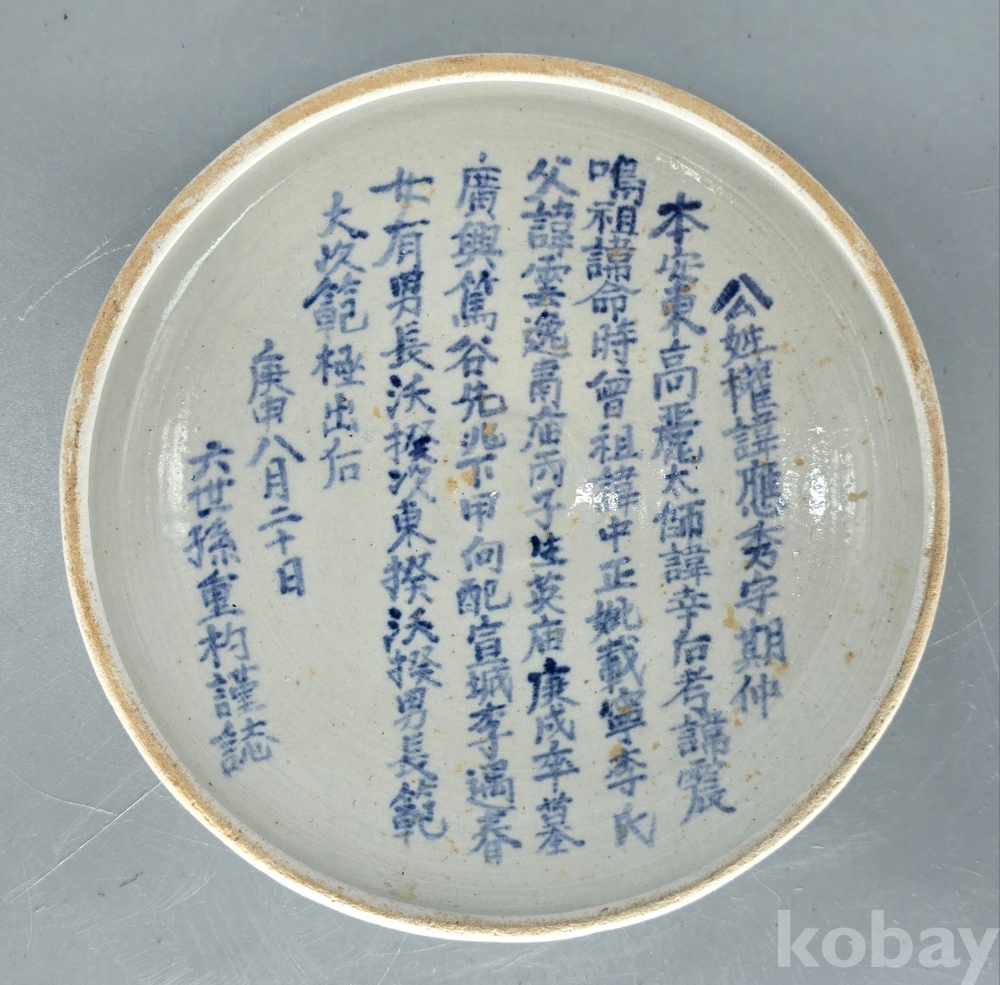 公姓權諱應秀字期仲
本安東高麗太師諱幸后考諱震
鳴祖諱命時曾祖諱中正妣載寧李氏
父諱雲逸肅庙丙子生英庙庚戌卒墓
廣興篤谷先兆下甲向配宣城李遇春
女有男長沃揆次東揆沃揆男長範
大次範極出后
庚申八月二十日
六世孫重杓謹誌
kobay